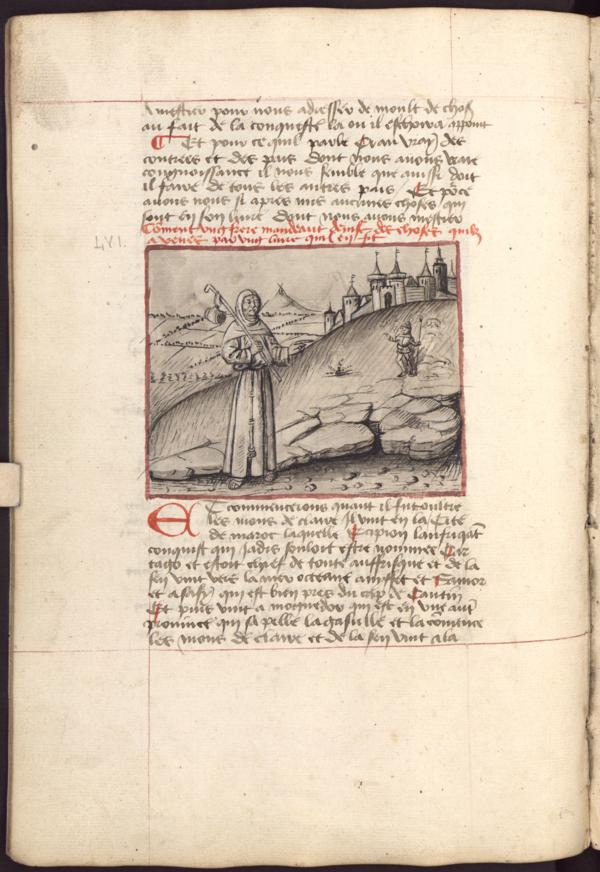 mestier pour nous adresser de moult de choses
au fait de la conqueste la ou il eschoira appoint
Et pour ce quil parle Et au vray des
contrees et des pais dont nous auons vraie
congnoissance il nous semble que aussi doit
il faire de tous les autres pais Et pour ce
auons nous si apres mis aucunes choses qui
sont en son liure dont nous auons mestier
Comment ung frere mendeant deuise des choses quil
a veues par ung liure quil en fit
LVI.
Et commencerons quant il fut oultre
les mons de clare Il vint en la Cite
de maroc laquelle Scipion laufriquant
conquist qui jadis souloit estre nommee Car
tago et estoit chief de toute auffrique et de la
sen vint vers la mer occeane a nyffet et Samor
et a saffy qui est bien pres du cap de Cantin
Et puis vint a moguedor qui est en une autre
prouince qui sapelle la gasulle et la commence
les mons de clare et de la sen vint a la